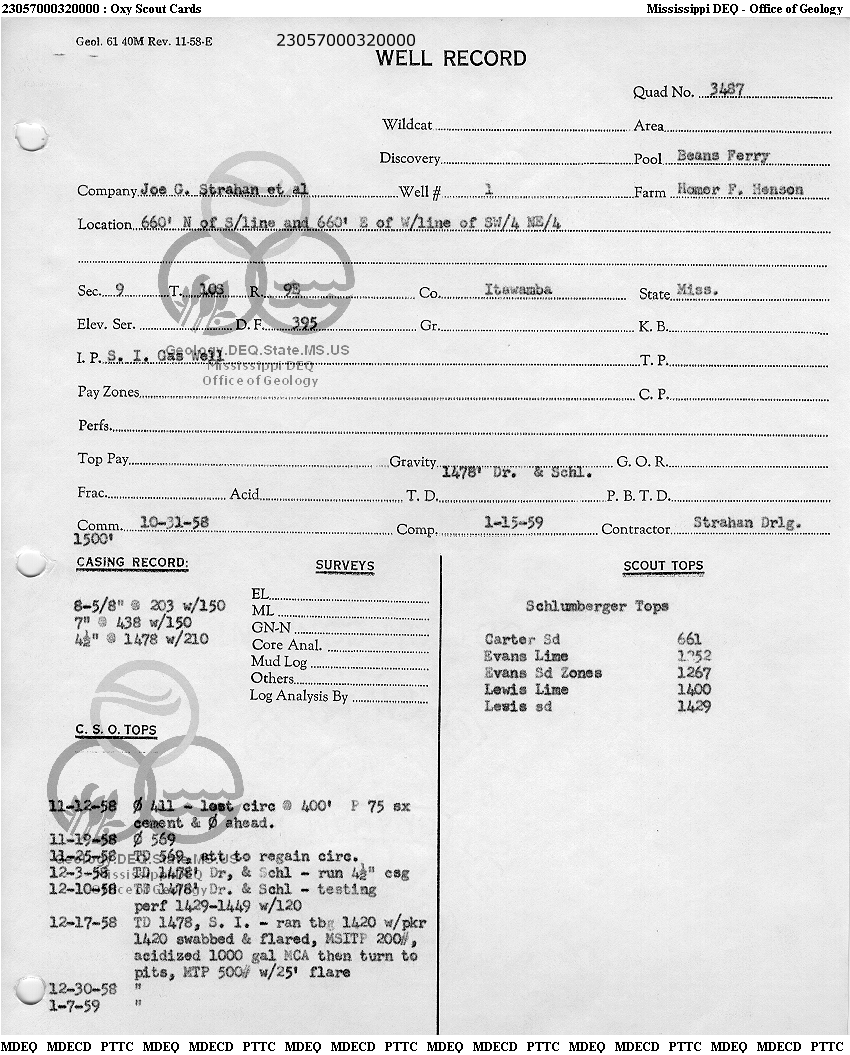 23057000320000 : Oxy Scout Cards Mississippi DEQ - Office of Geology
Geol. 61 40M Rev. 11-58-E 23057000320000
WELL RECORD
Quad No. 3487
Wildcat Area
Discovery Pool Beans Ferry
Company Joe G. Strahan et al Well # 1 Farm Homer F. Henson
Location 660' N of S/line and 660' E of W/line of SW/4 NE/4
Sec. 9 T. 10S R. 9E Co. Itawamba State Miss.
Elev. Ser. D. F. 395 Gr. K. B.
Geology.DEQ.State.MS.US
I. P. S. I. Gas Well T. P.
Mississippi DEQ
Office of Geology
Pay Zones C. P.
Perfs.
Top Pay Gravity G. O. R.
1478' Dr. & Schl.
Frac. Acid T. D. P. B. T. D.
Comm. 10-31-58 Comp. 1-15-59 Contractor Strahan Drlg.
1500'
CASING RECORD:
8-5/8" @ 203 w/150
7" @ 438 w/150
4½" @ 1478 w/210
SURVEYS
EL
ML
GN-N
Core Anal.
Mud Log
Others
Log Analysis By
SCOUT TOPS
Schlumberger Tops
Carter Sd 661
Evans Lime
Evans Sd Zones 1267
Lewis Lime 1400
Lewis sd 1429
C. S. O. TOPS
11-12-58 Ø 411 - lost circ @ 400' P 75 sx
cement & Ø ahead.
11-19-58 Ø 569
11-25-58 TD 569, att to regain circ.
Geology.DEQ.State.MS.US
12-3-58 TD 1478' Dr, & Schl - run 4½" csg
Mississippi DEQ
12-10-58 TD 1478' Dr. & Schl - testing
Office of Geology
perf 1429-1449 w/120
12-17-58 TD 1478, S. I. - ran tbg 1420 w/pkr
1420 swabbed & flared, MSITP 200#,
acidized 1000 gal MCA then turn to
pits, MTP 500# w/25' flare
12-30-58 "
1-7-59 "
MDEQ MDECD PTTC MDEQ MDECD PTTC MDEQ MDECD PTTC MDEQ MDECD PTTC MDEQ MDECD PTTC MDEQ MDECD PTTC